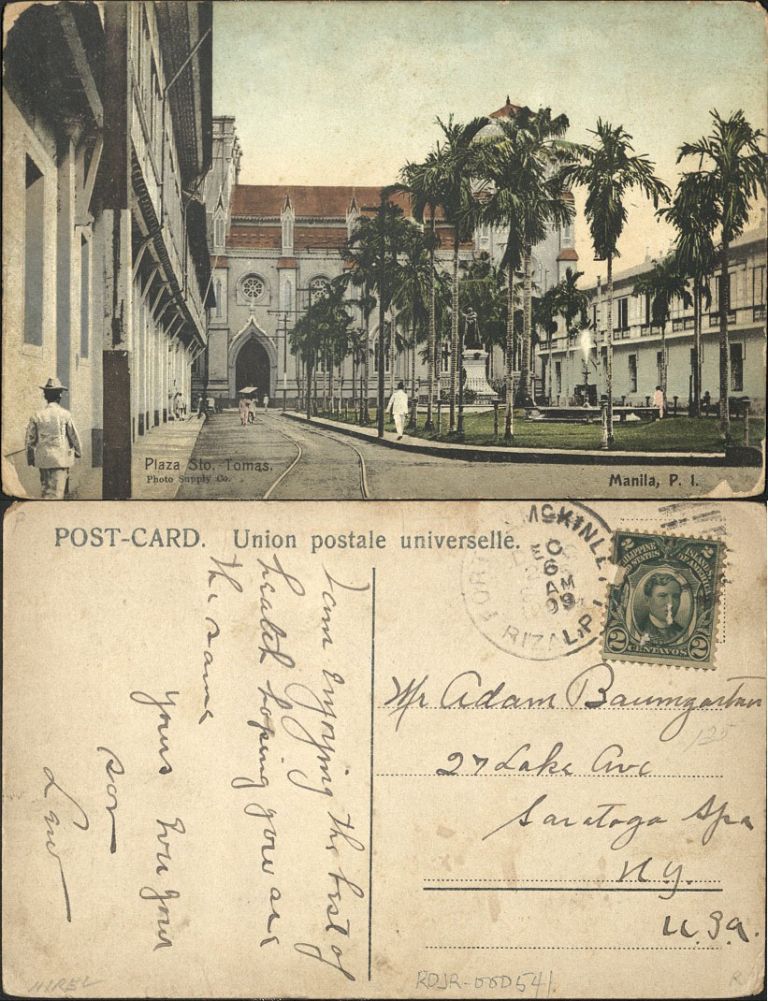 Plaza Sto. Tomas.
Photo Supply Co.
Manila, P. I.
POST-CARD. Union postale universelle.
McKINLEY
RIZAL, P.
6
AM
09
PHILIPPINE ISLANDS
UNITED STATES OF AMERICA
2 CENTAVOS 2
I am enjoying the best of
health hoping you are
the same
Yours
son
Mr Adam Baumgartner
125
27 Lake Ave
Saratoga Spa
N.Y.
U.S.A.
RDJR-000541.